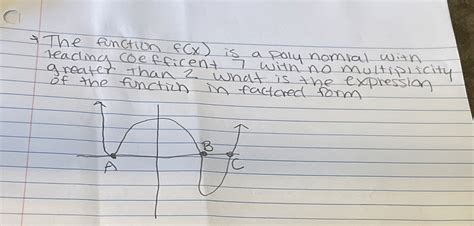 The function f(x) is a polynomial with
leading coefficent 7 with no multiplicity
greater than 2 what is the expression
of the function in factored form
B
A
C